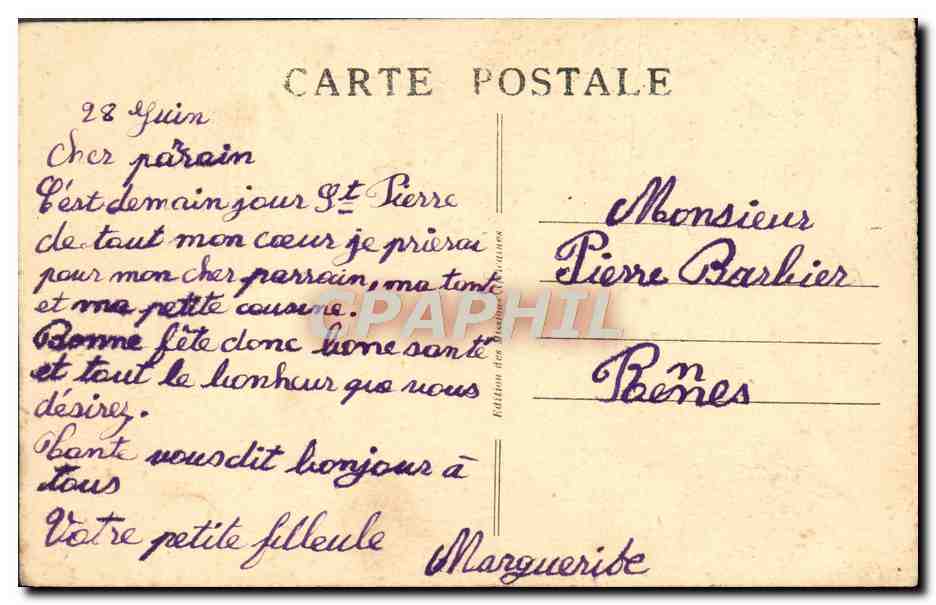 CARTE POSTALE
28 Juin
Cher parrain
C'est demain jour St Pierre
de tout mon cœur je prierai
pour mon cher parrain, ma tante
et ma petite cousine.
Bonne fête donc bone santé
et tout le bonheur que vous
désirez.
Tante vous dit bonjour à
tous
Votre petite filleule
Marguerite
Edition des Missions Africaines
Monsieur
Pierre Barbier
Rennes
CPAPHIL